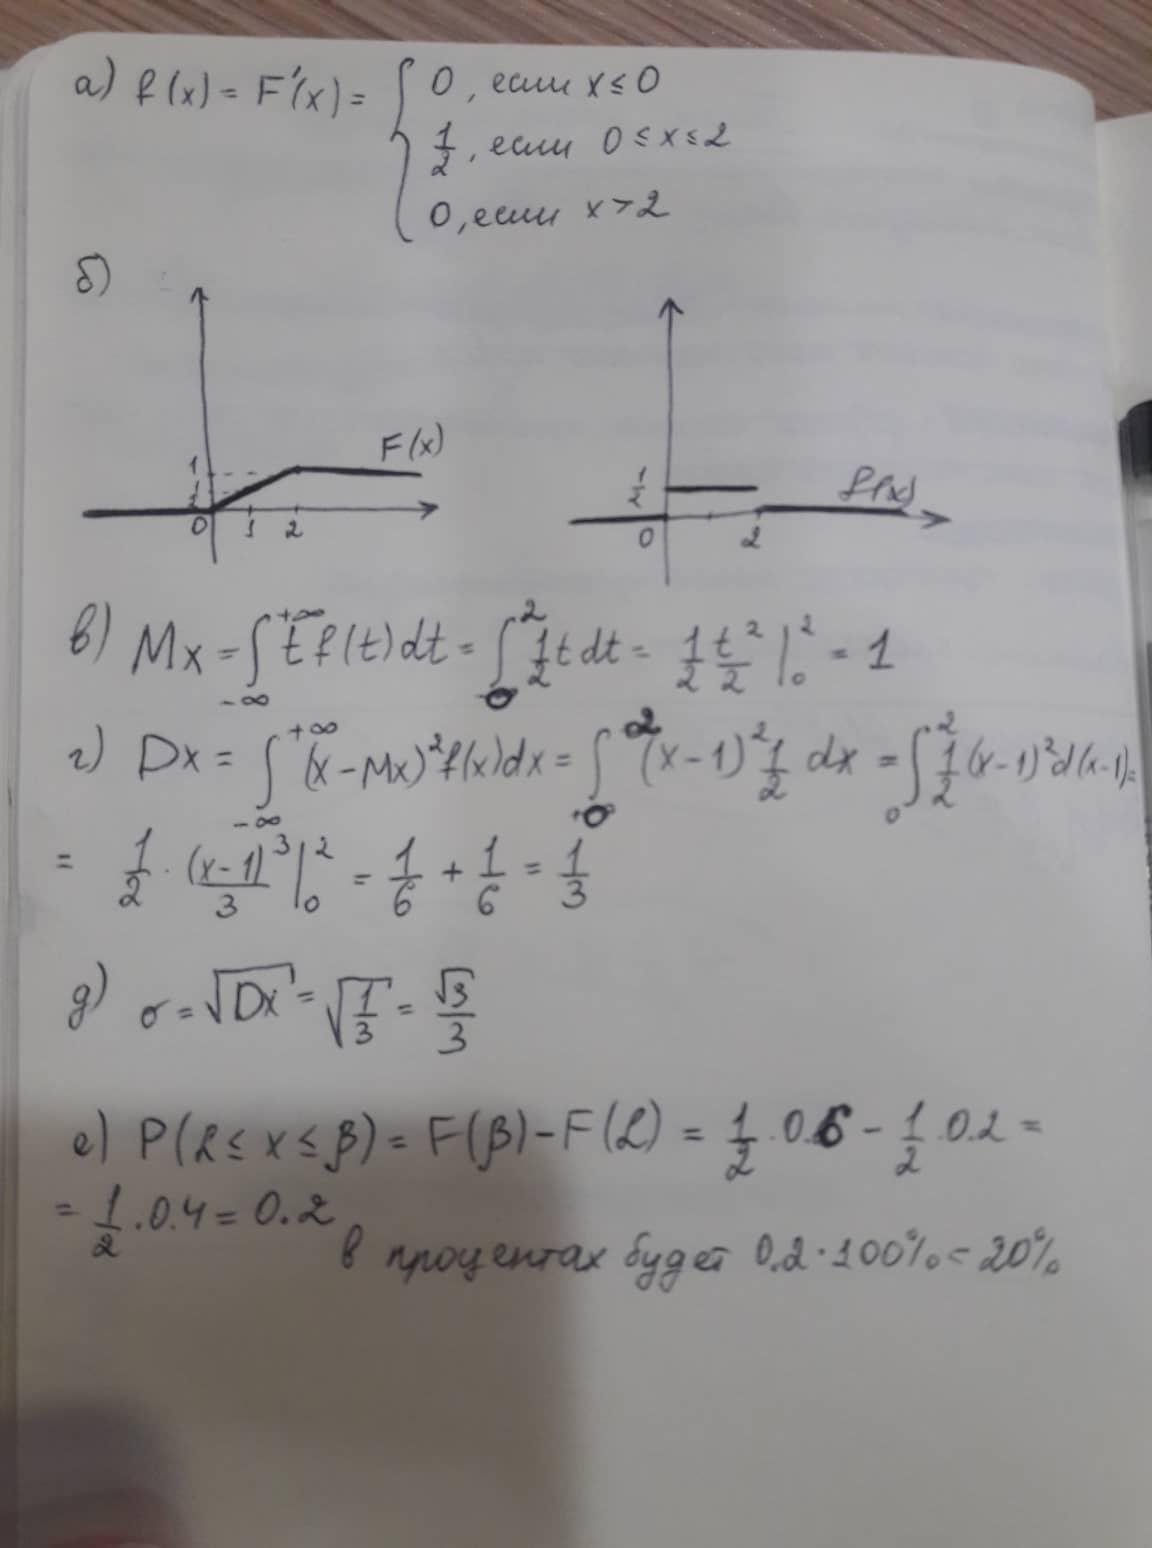 а) f(x) = F'(x) = { 0, если x ≤ 0
1/2, если 0 ≤ x ≤ 2
0, если x > 2
б)
F(x)
1
1/2
0 1 2
f(x)
1/2
0 2
в) Mx = ∫_{-∞}^{+∞} t f(t) dt = ∫_0^2 1/2 t dt = 1/2 t²/2 |_0^2 = 1
г) Dx = ∫_{-∞}^{+∞} (x-Mx)² f(x) dx = ∫_0^2 (x-1)² 1/2 dx = ∫_0^2 1/2 (x-1)² d(x-1) =
= 1/2 · (x-1)³/3 |_0^2 = 1/6 + 1/6 = 1/3
д) σ = √Dx = √(1/3) = √3/3
е) P(α ≤ x ≤ β) = F(β) - F(α) = 1/2 · 0.6 - 1/2 · 0.2 =
= 1/2 · 0.4 = 0.2
в процентах будет 0.2 · 100% = 20%